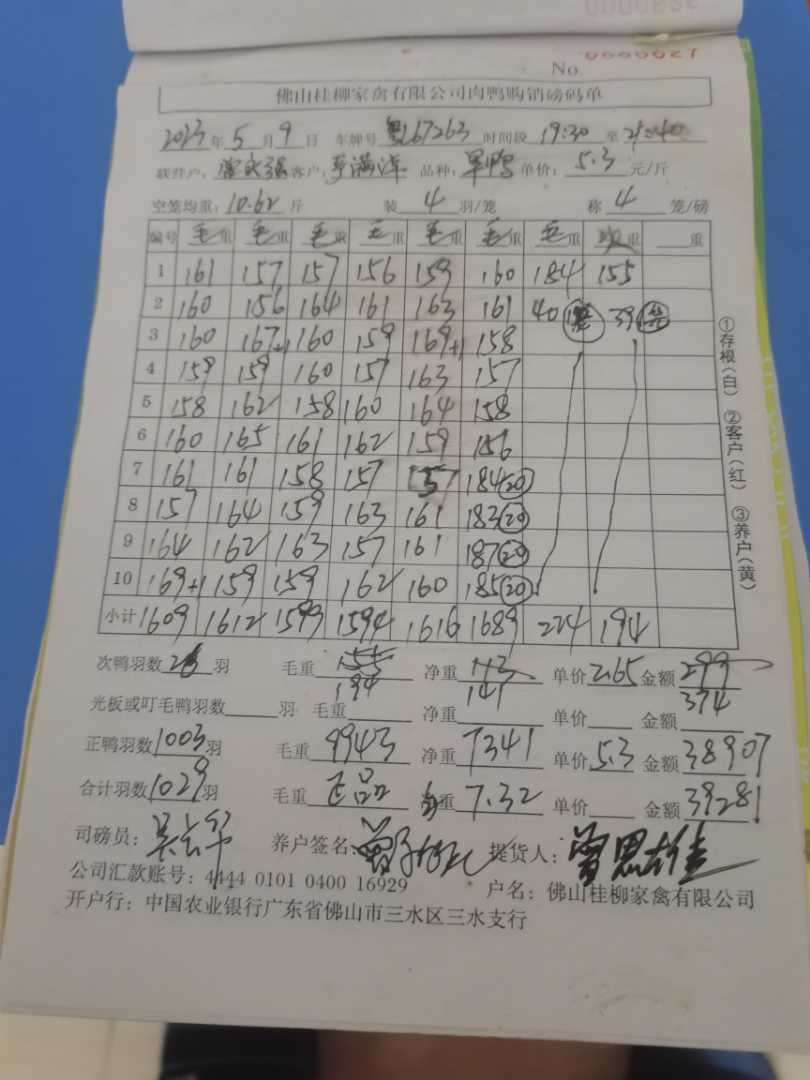 No.
佛山桂柳家禽有限公司肉鸭购销磅码单
2023年5月9日 车牌号 粤L67263 时间段 19:30 至 21:40
联营户: 客户: 李满洋 品种: 单鸭 单价: 5.3 元/斤
空笼均重: 10.62 斤 装 4 羽/笼 称 4 笼/磅
编号 毛重 毛重 毛重 毛重 毛重 毛重 毛重 次重 重
1 161 157 157 156 159 160 184 155
2 160 156 164 161 163 161 40 39
3 160 167+1 160 159 169+1 158
4 159 159 160 157 163 157
5 158 162 158 160 164 158
6 160 165 161 162 159 156
7 161 161 158 157 157 184(20)
8 157 164 159 163 161 183(20)
9 164 162 163 157 161 187(20)
10 169+1 159 159 162 160 185(20)
小计 1609 1612 1599 1594 1616 1689 224 194
次鸭羽数 26 羽 毛重 155 净重 113 单价 2.65 金额 299
194 141 374
光板或叮毛鸭羽数 羽 毛重 净重 单价 金额
正鸭羽数 1003 羽 毛重 9943 净重 7341 单价 5.3 金额 38907
合计羽数 1029 羽 毛重 正品 均重 7.32 单价 金额 39281
司磅员: 养户签名: 提货人: 曾思雄
公司汇款账号: 4444 0101 0400 16929 户名: 佛山桂柳家禽有限公司
开户行: 中国农业银行广东省佛山市三水区三水支行
①存根(白) ②客户(红) ③养户(黄)